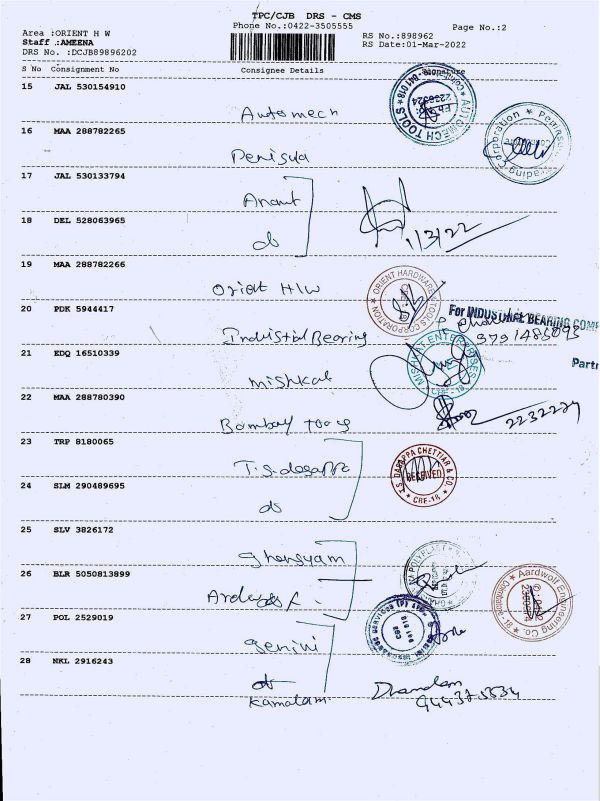 TPC/CJB DRS - CMS
Phone No.:0422-3505555
Page No.:2
Area :ORIENT H W
Staff :AMEENA
DRS No. :DCJB89896202
RS No.:898962
RS Date:01-Mar-2022
S No Consignment No Consignee Details Signature
15 JAL 530154910
Automech
AUTOMECH TOOLS
16 MAA 288782265
Penisula
17 JAL 530133794
Anant
18 DEL 528063965
do
1/3/22
19 MAA 288782266
Orient H/W
ORIENT HARDWARE & TOOLS CORPORATION
20 PDK 5944417
For INDUSTRIAL BEARING COM
9791485093
Industrial Bearing
21 EDQ 16510339
Partn
mishkat
MISHKAT ENTERPRISES
CBE-18
22 MAA 288780390
Bombay Tools
2232227
23 TRP 8180065
T.S.dasappa
T.S. DARAPPA CHETTIAR & CO.
RECEIVED
CBE-18
24 SLM 290489695
do
25 SLV 3826172
Ghansyam
26 BLR 5050813899
Aardwolf Engineering Co.
27 POL 2529019
Gemini
28 NKL 2916243
do
Kamalam